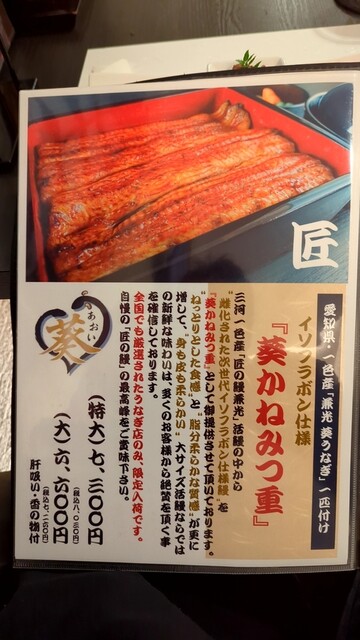 匠
愛知県・一色産「兼光 葵うなぎ」一匹付け
イソフラボン仕様
『葵かねみつ重』
三河一色産「匠の鰻兼光」活鰻の中から
"雌化された次世代イソフラボン仕様鰻"を
『葵かねみつ重』として御提供させて頂いております。
"ねっとりとした食感"と"脂分柔らかな質感"が更に
増して、"身も皮も柔らかい"大サイズ活鰻ならでは
の新鮮な味わいは、多くのお客様から絶賛を頂く事
を確信しております。
全国でも厳選されたうなぎ店のみ、限定入荷です。
自慢の「匠の鰻」の最高峰をご賞味下さい。
あおい
葵
(特大)七、三〇〇円
(税込八、〇三〇円)
(大)六、六〇〇円
(税込七、二六〇円)
肝吸い・香の物付